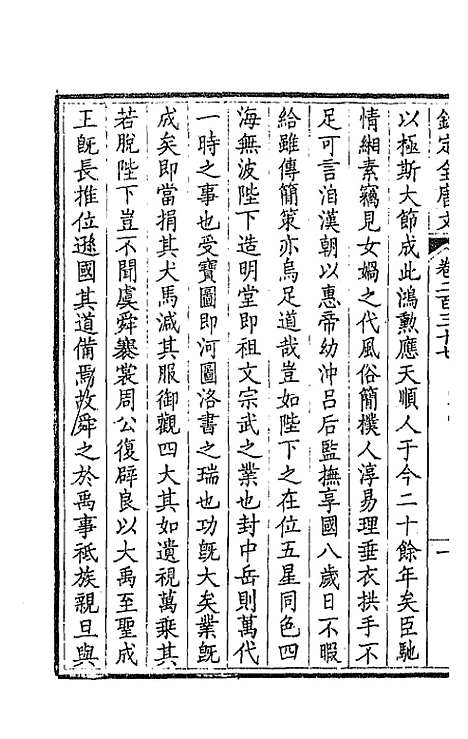 欽定全唐文 卷二百三十七 一
以極斯大節成此鴻勳應天順人于今二十餘年矣臣馳
情緗素竊見女媧之代風俗簡樸人淳易理垂衣拱手不
足可言洎漢朝以惠帝幼沖呂后監撫享國八歲日不暇
給雖傳簡策亦烏足道哉豈如陛下之在位五星同色四
海無波陛下造明堂即祖文宗武之業也封中岳則萬代
一時之事也受寶圖即河圖洛書之瑞也功旣大矣業旣
成矣即當捐其犬馬減其服御觀四大其如遺視萬乘其
若脫陛下豈不聞虞舜褰裳周公復辟良以大禹至聖成
王旣長推位遜國其道備焉故舜之於禹事祗族親旦與